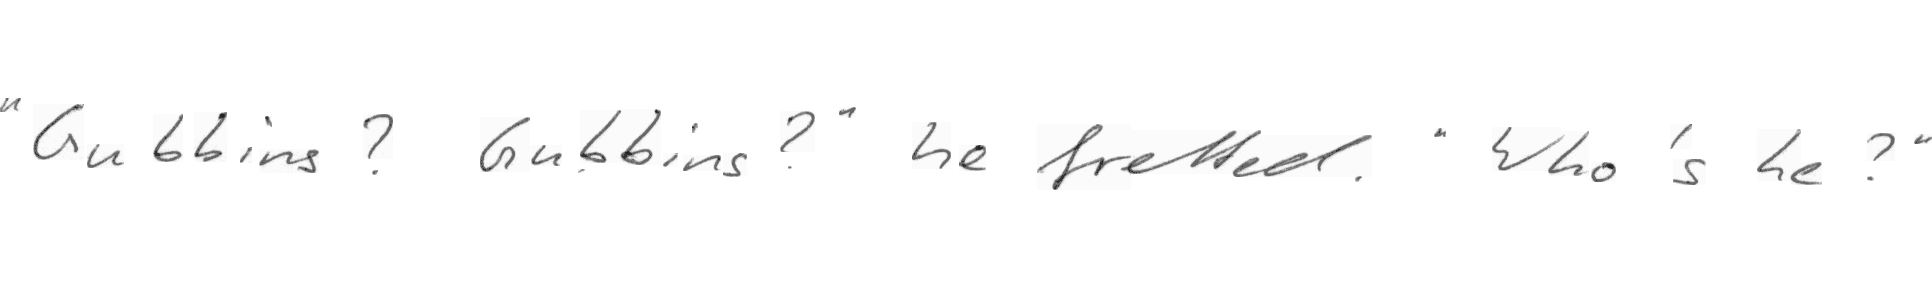 "Gubbins? Gubbins?" he fretted. "Who's he?"